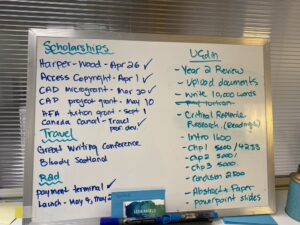 Scholarships
Harper-Wood - Apr 26 ✓
Access Copyright - Apr 1 ✓
CAD microgrant - Mar 30 ✓
CAD project grant - May 10
tuition grant - Sept 1
Canada Council - Travel ✓
prof. dev.
Travel
Great Writing Conference
Bloody Scotland
Rad
payment terminal ✓
Launch - May 9, May 2
UEdin
- Year 2 Review
- Upload documents
- Write 10,000 words
- Critical Remedie Research (Readings)
- Intro 1600
- Chp 1 5000/4238
- Chp 2 5000/
- Chp 3 5000
- Conclusion 2500
- Abstract & Paper
- powerpoint slides